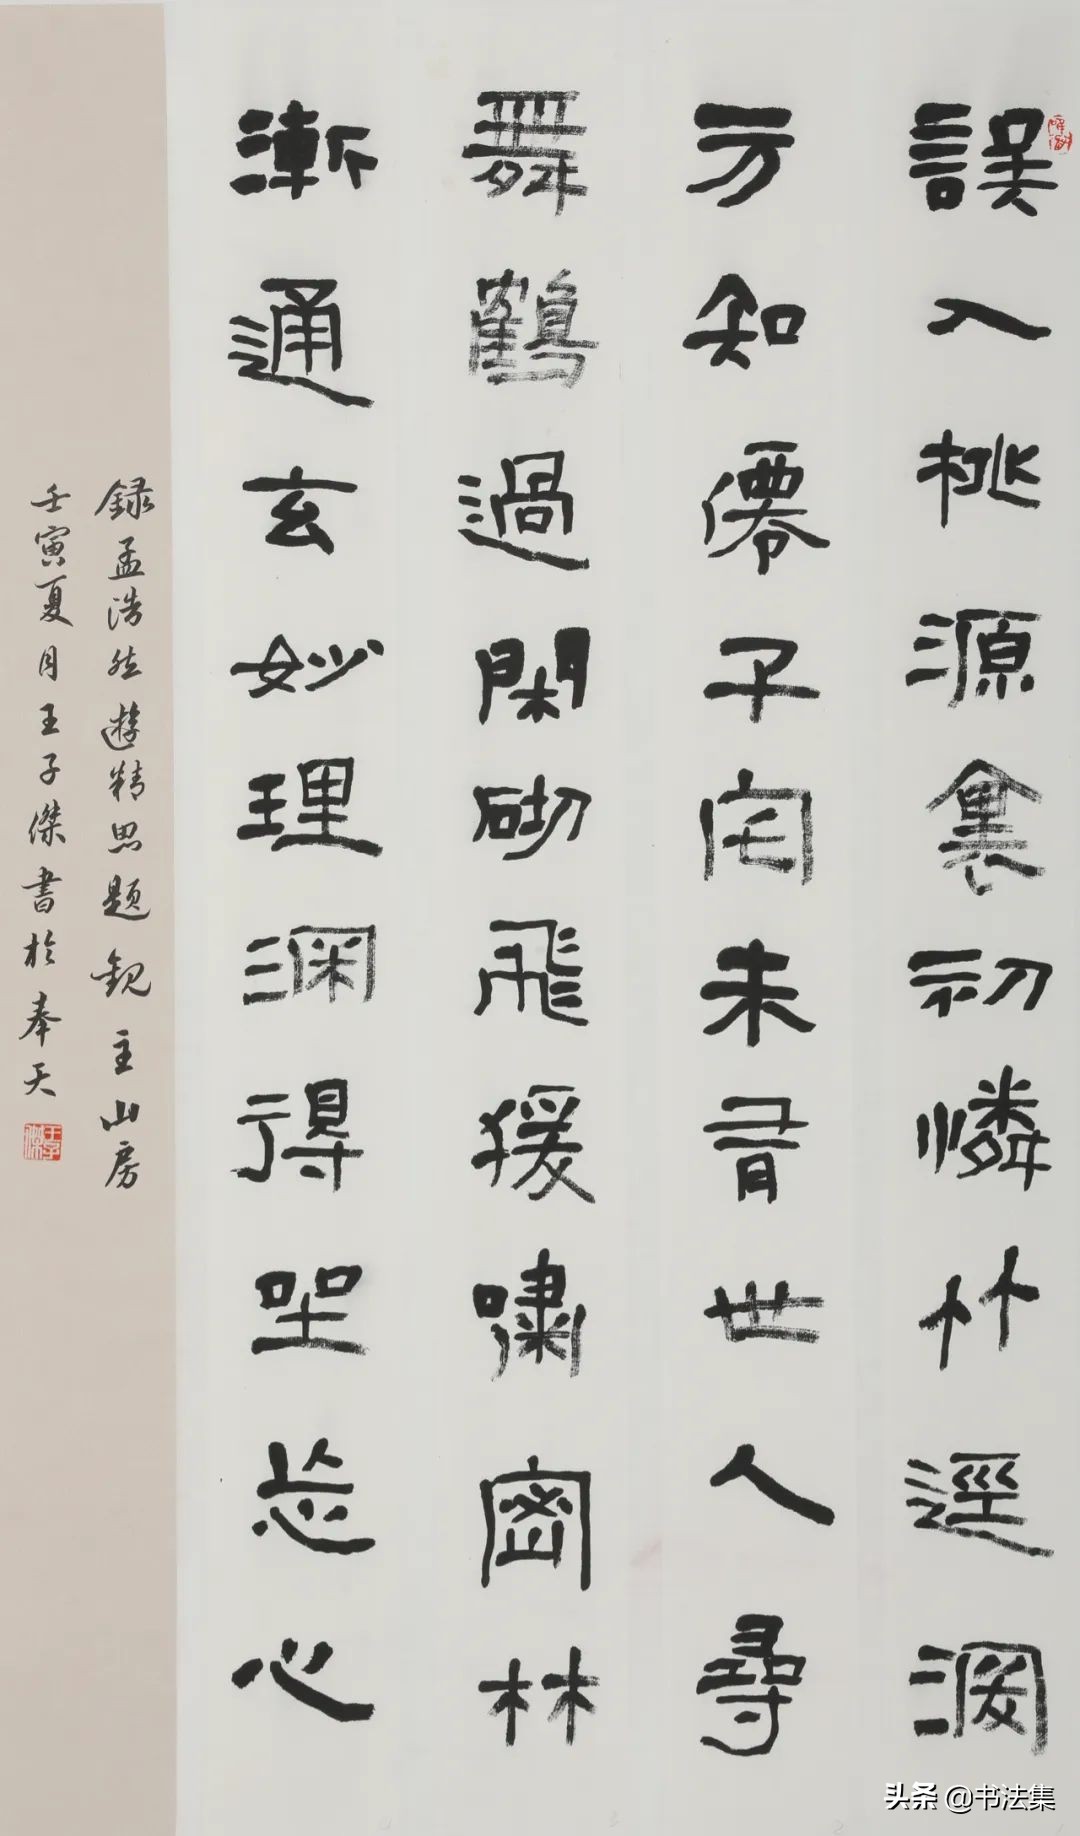 誤入桃源裏初憐竹逕深
方知僊子宅未有世人尋
舞鶴過閑砌飛猨嘯密林
漸通玄妙理深得坐忘心
録孟浩然遊精思題觀主山房
壬寅夏月王子傑書於奉天
王子傑
头条 @书法集